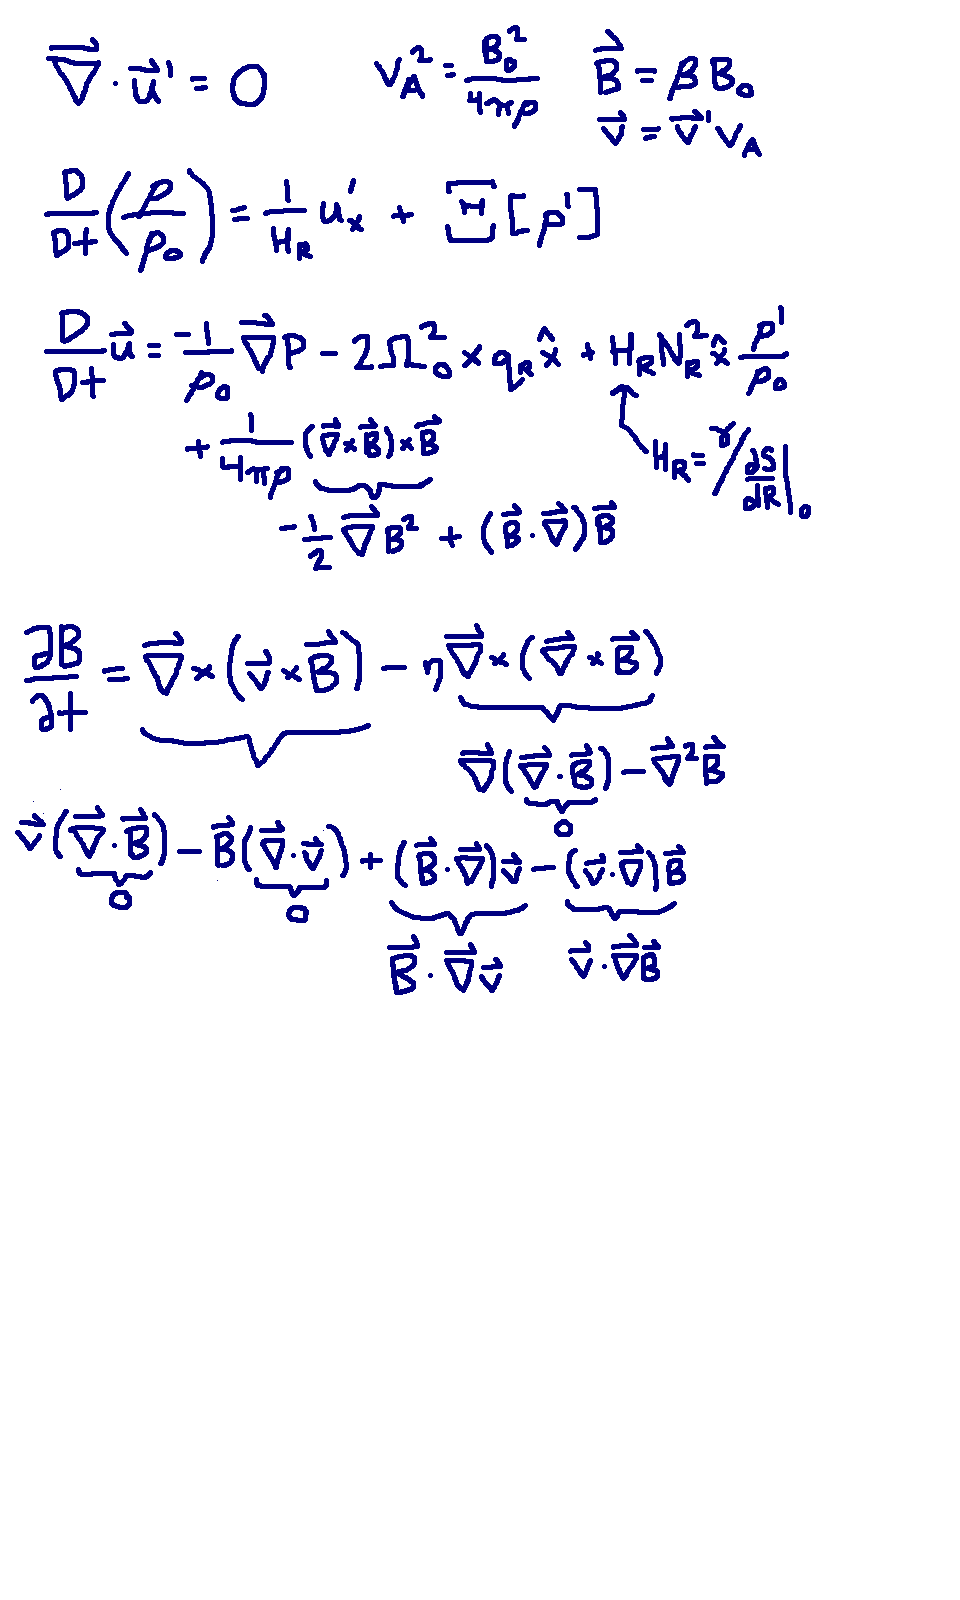 ∇⃗ · u⃗' = 0    V_A² = B₀² / 4πρ    B⃗ = β B₀
v⃗ = v⃗' V_A
D/Dt (ρ/ρ₀) = 1/H_R u'ₓ + Ξ[ρ']
D/Dt u⃗ = -1/ρ₀ ∇⃗P - 2Ω₀² x q_R x̂ + H_R N_R² x̂ ρ'/ρ₀
+ 1/4πρ (∇⃗ × B⃗) × B⃗    H_R = γ / ∂S/∂R |₀
-1/2 ∇⃗B² + (B⃗ · ∇⃗)B⃗
∂B/∂t = ∇⃗ × (v⃗ × B⃗) - η∇⃗ × (∇⃗ × B⃗)
∇⃗(∇⃗ · B⃗) - ∇⃗²B⃗
0
v⃗(∇⃗ · B⃗) - B⃗(∇⃗ · v⃗) + (B⃗ · ∇⃗)v⃗ - (v⃗ · ∇⃗)B⃗
0    0
B⃗ · ∇⃗v⃗    v⃗ · ∇⃗B⃗